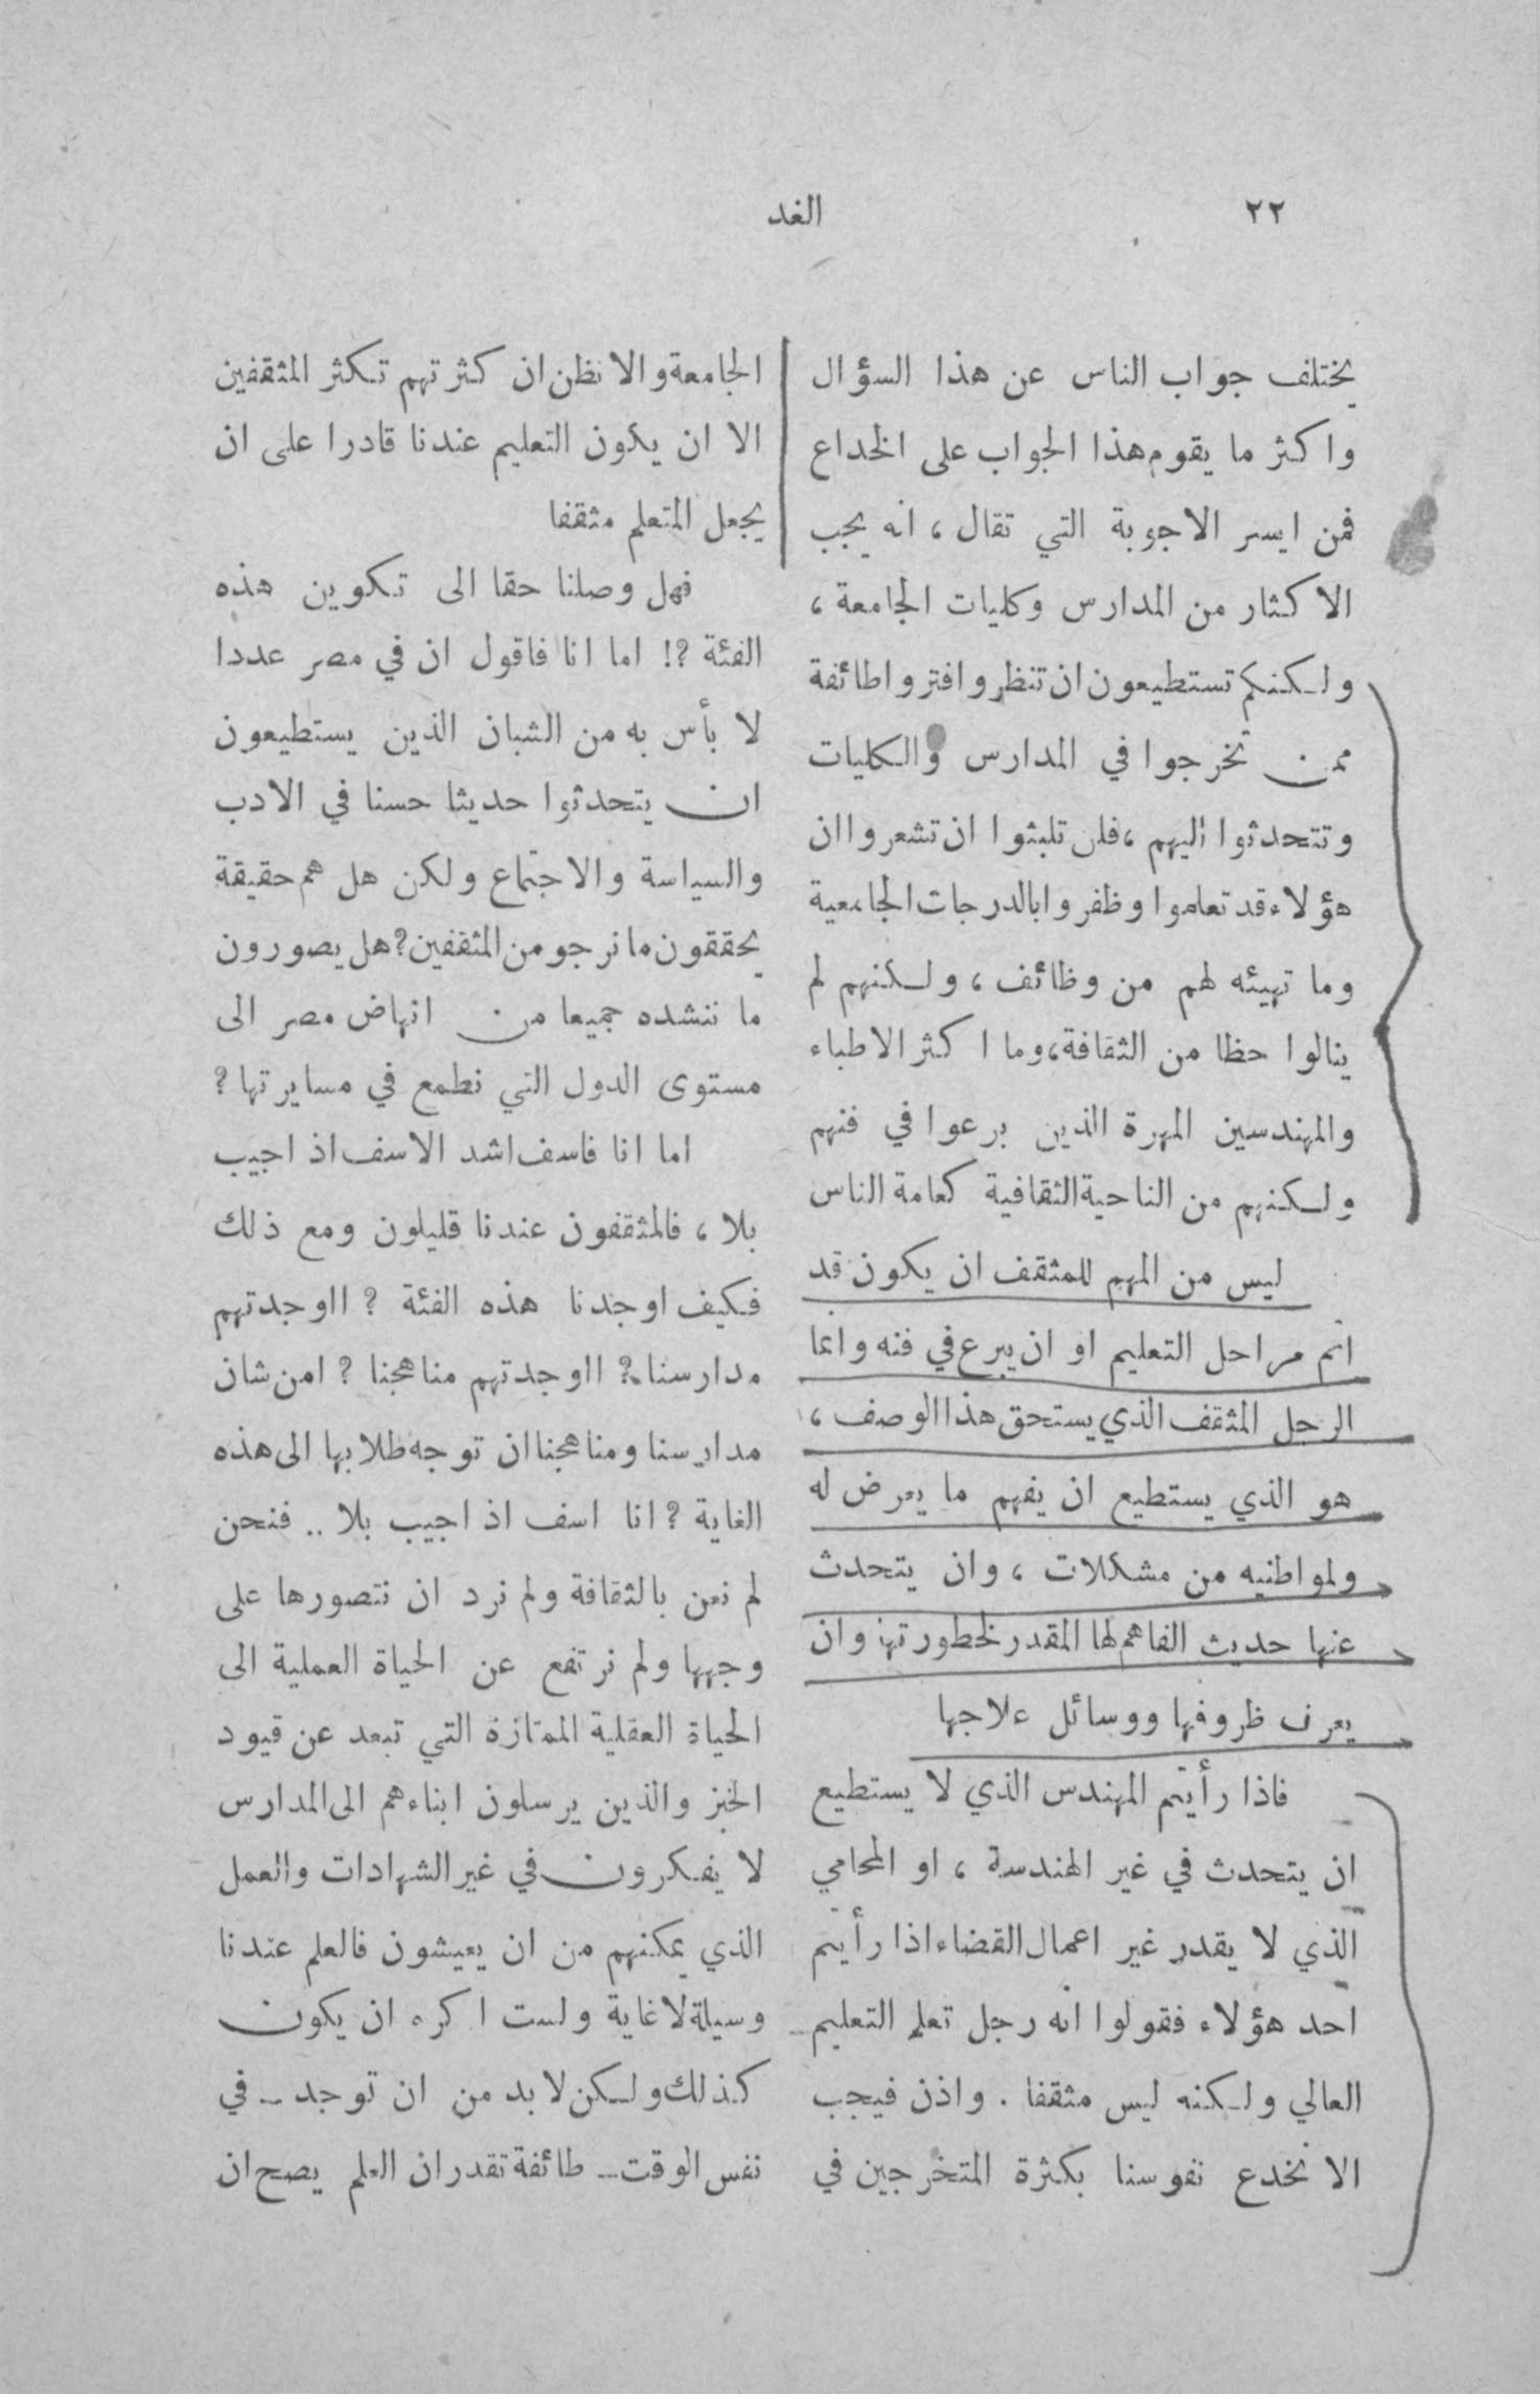 ٢٢
الغد
يختلف جواب الناس عن هذا السؤال
واكثر ما يقوم هذا الجواب على الخداع
فمن ايسر الاجوبة التي تقال ، انه يجب
الاكثار من المدارس وكليات الجامعة ،
ولكنكم تستطيعون ان تنظروا فتروا طائفة
ممن تخرجوا في المدارس والكليات
وتتحدثوا اليهم ، فلن تلبثوا ان تشعروا ان
هؤلاء قد تعلموا وظفروا بالدرجات الجامعية
وما تهيئه لهم من وظائف ، ولكنهم لم
ينالوا حظا من الثقافة ، وما اكثر الاطباء
والمهندسين المهرة الذين برعوا في فنهم
ولكنهم من الناحية الثقافية كعامة الناس
ليس من المهم للمثقف ان يكون قد
اتم مراحل التعليم او ان يبرع في فنه وانما
الرجل المثقف الذي يستحق هذا الوصف ،
هو الذي يستطيع ان يفهم ما يعرض له
ولمواطنيه من مشكلات ، وان يتحدث
عنها حديث الفاهم لها المقدر لخطورتها وان
يعرف ظروفها ووسائل علاجها
فاذا رأيتم المهندس الذي لا يستطيع
ان يتحدث في غير الهندسة ، او المحامي
الذي لا يقدر غير اعمال القضاء اذا رأيتم
احد هؤلاء فقولوا انه رجل تعلم التعليم
العالي ولكنه ليس مثقفا . واذن فيجب
الا نخدع نفوسنا بكثرة المتخرجين في
الجامعة والا نظن ان كثرتهم تكثر المثقفين
الا ان يكون التعليم عندنا قادرا على ان
يجعل المتعلم مثقفا
فهل وصلنا حقا الى تكوين هذه
الفئة ؟! اما انا فاقول ان في مصر عددا
لا بأس به من الشبان الذين يستطيعون
ان يتحدثوا حديثا حسنا في الادب
والسياسة والاجتماع ولكن هل هم حقيقة
يحققون ما نرجو من المثقفين ؟ هل يصورون
ما ننشده جميعا من انهاض مصر الى
مستوى الدول التي نطمع في مسايرتها ؟
اما انا فاسف اشد الاسف اذ اجيب
بلا ، فالمثقفون عندنا قليلون ومع ذلك
فكيف اوجدنا هذه الفئة ؟ ااوجدتهم
مدارسنا ؟ ااوجدتهم مناهجنا ؟ امن شان
مدارسنا ومناهجنا ان توجه طلابها الى هذه
الغاية ؟ انا اسف اذ اجيب بلا .. فنحن
لم نعن بالثقافة ولم نرد ان نتصورها على
وجهها ولم نرتفع عن الحياة العملية الى
الحياة العقلية الممتازة التي تبعد عن قيود
الخبز والذين يرسلون ابناءهم الى المدارس
لا يفكرون في غير الشهادات والعمل
الذي يمكنهم من ان يعيشون فالعلم عندنا
وسيلة لا غاية ولست اكره ان يكون
كذلك ولكن لا بد من ان توجد - في
نفس الوقت - طائفة تقدر ان العلم يصح ان